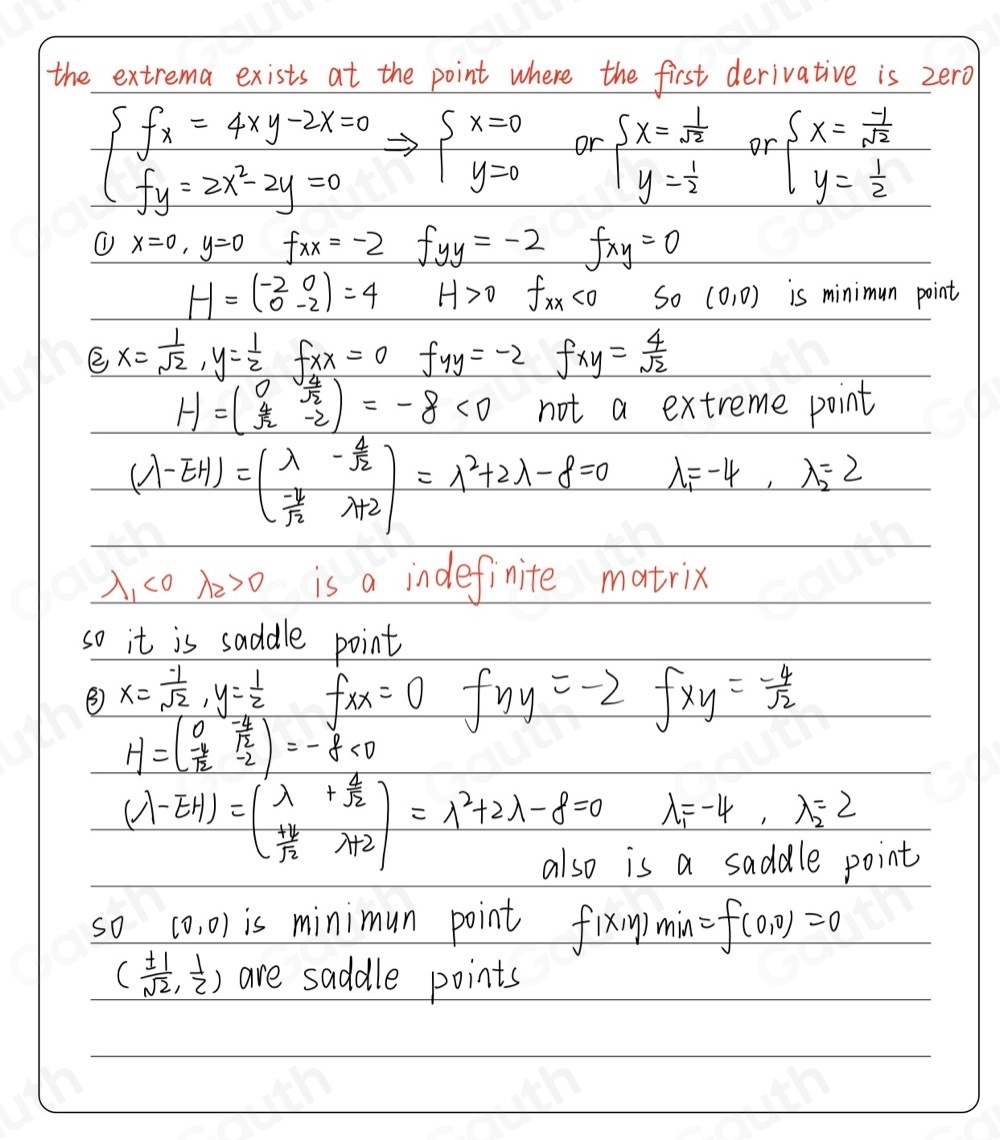 the extrema exists at the point where the first derivative is zero
{ fx = 4xy-2x=0 fy = 2x²-2y=0 ⇒ { x=0 y=0 or { x = 1/√2 y = 1/2 or { x = -1/√2 y = 1/2
① x=0, y=0 fxx = -2 fyy = -2 fxy = 0
H = (-2 0 0 -2) = 4 H>0 fxx<0 so (0,0) is minimun point
② x = 1/√2, y = 1/2 fxx = 0 fyy = -2 fxy = 4/√2
H = (0 4/√2 4/√2 -2) = -8 <0 not a extreme point
(λ-EH) = (λ -4/√2 -4/√2 λ+2) = λ²+2λ-8=0 λ₁=-4, λ₂=2
λ₁<0 λ₂>0 is a indefinite matrix
so it is saddle point
③ x = -1/√2, y = 1/2 fxx = 0 fyy = -2 fxy = -4/√2
H = (0 -4/√2 -4/√2 -2) = -8<0
(λ-EH) = (λ +4/√2 +4/√2 λ+2) = λ²+2λ-8=0 λ₁=-4, λ₂=2
also is a saddle point
so (0,0) is minimun point f(x,y) min = f(0,0) = 0
(±1/√2, 1/2) are saddle points
Gauth